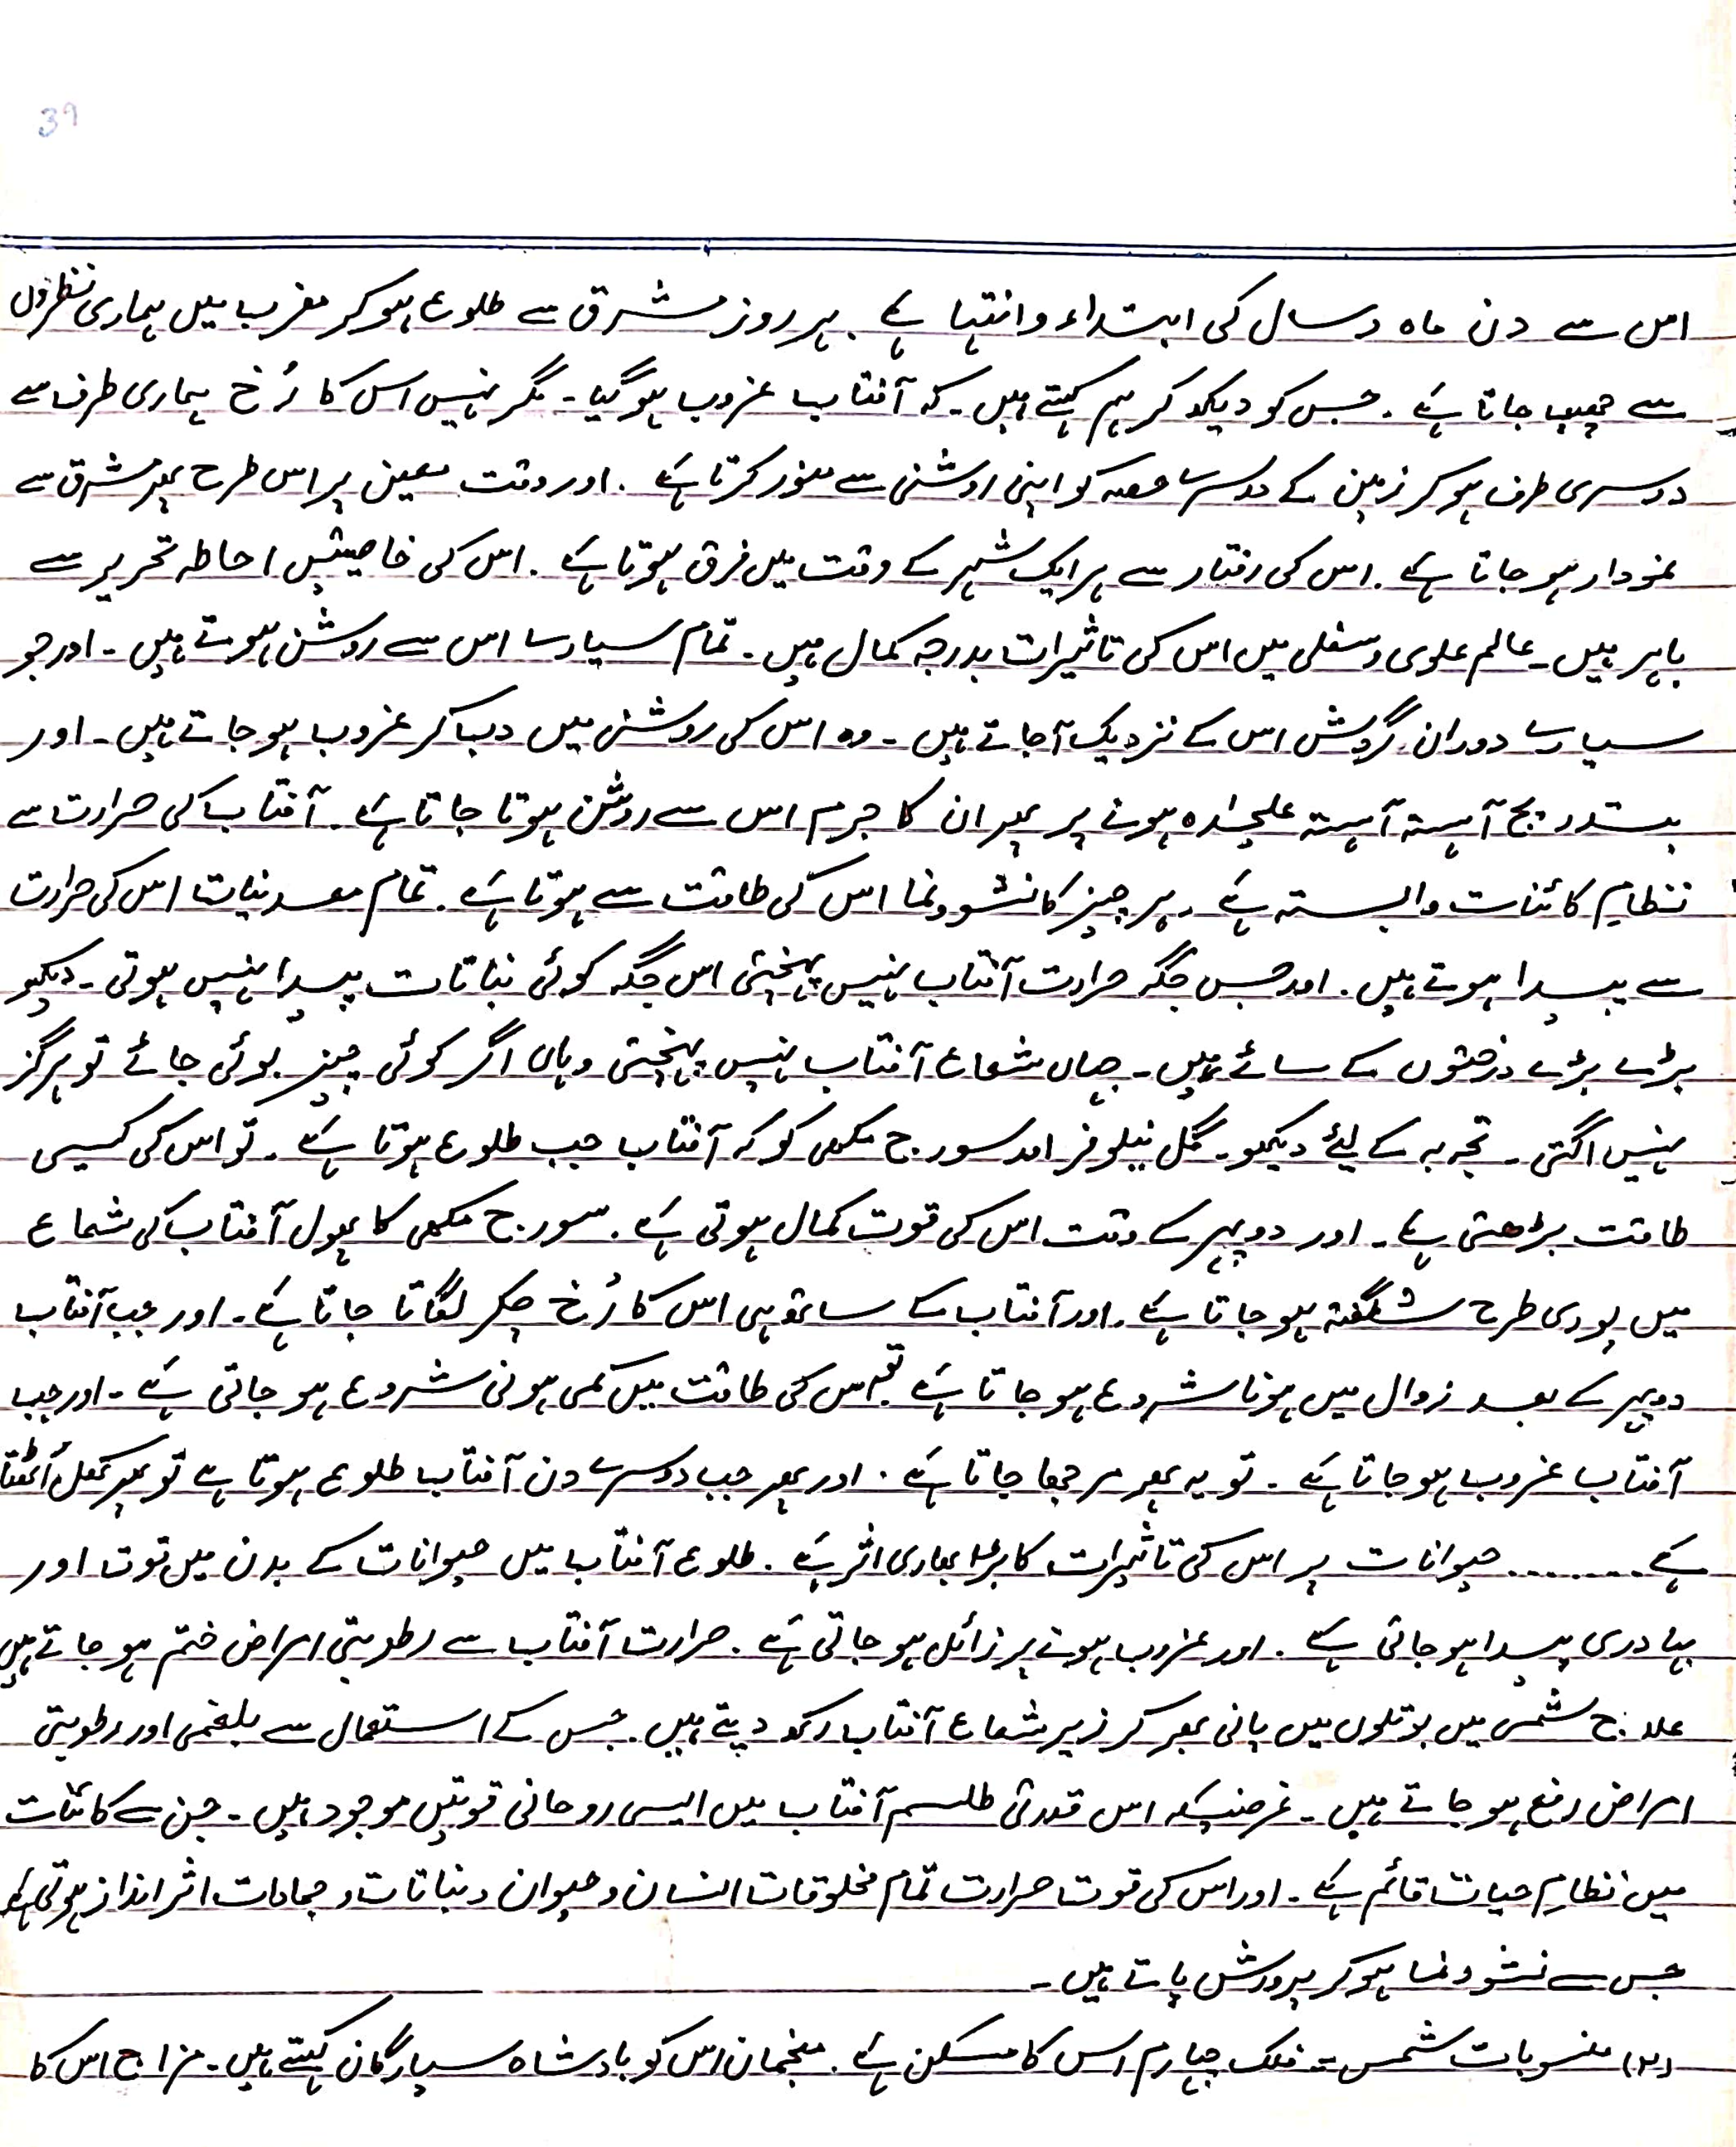 39
اس سے دن ماہ و سال کی ابتداء و انتہا ہے ۔ ہر روز مشرق سے طلوع ہو کر مغرب میں ہماری نظروں
سے چھپ جاتا ہے ۔ جس کو دیکھ کر ہم کہتے ہیں ۔ کہ آفتاب غروب ہو گیا ۔ مگر نہیں اس کا رُخ ہماری طرف سے
دوسری طرف ہو کر زمین کے دوسرے حصہ کو اپنی روشنی سے منور کرتا ہے ۔ اور وقت معین پر اس طرح پھر مشرق سے
نمودار ہو جاتا ہے ۔ اس کی رفتار سے ہر ایک شہر کے وقت میں فرق ہوتا ہے ۔ اس کی خاصیتیں احاطہ تحریر سے
باہر ہیں ۔ عالم علوی و سفلی میں اس کی تاثیرات بدرجہ کمال ہیں ۔ تمام سیارے اس سے روشن ہوتے ہیں ۔ اور جو
سیارے دوران گردش اس کے نزدیک آ جاتے ہیں ۔ وہ اس کی روشنی میں دب کر غروب ہو جاتے ہیں ۔ اور
بتدریج آہستہ آہستہ علیحدہ ہونے پر پھر ان کا جرم اس سے روشن ہوتا جاتا ہے ۔ آفتاب کی حرارت سے
نظامِ کائنات وابستہ ہے ۔ ہر چیز کا نشوونما اس کی طاقت سے ہوتا ہے ۔ تمام معدنیات اس کی حرارت
سے پیدا ہوتے ہیں ۔ اور جس جگہ حرارت آفتاب نہیں پہنچتی اس جگہ کوئی نباتات پیدا نہیں ہوتی ۔ دیکھو
بڑے بڑے درختوں کے سائے میں ۔ جہاں شعاع آفتاب نہیں پہنچتی وہاں اگر کوئی چیز بوئی جائے تو ہرگز
نہیں اگتی ۔ تجربہ کے لیئے دیکھو ۔ گل نیلوفر اور سورج مکھی کو کہ آفتاب جب طلوع ہوتا ہے ۔ تو اس کی کیسی
طاقت بڑھتی ہے ۔ اور دوپہر کے وقت اس کی قوت کمال ہوتی ہے ۔ سورج مکھی کا پھول آفتاب کی شعاع
میں پوری طرح شگفتہ ہو جاتا ہے ۔ اور آفتاب کے ساتھ ہی اس کا رُخ چکر لگاتا جاتا ہے ۔ اور جب آفتاب
دوپہر کے بعد زوال میں ہونا شروع ہو جاتا ہے تو اس کی طاقت میں کمی ہونی شروع ہو جاتی ہے ۔ اور جب
آفتاب غروب ہو جاتا ہے ۔ تو یہ پھر مرجھا جاتا ہے ۔ اور پھر جب دوسرے دن آفتاب طلوع ہوتا ہے تو پھر کھل اُٹھتا
ہے ........ حیوانات پر اس کی تاثیرات کا بڑا بھاری اثر ہے ۔ طلوع آفتاب میں حیوانات کے بدن میں قوت اور
بہادری پیدا ہو جاتی ہے ۔ اور غروب ہونے پر زائل ہو جاتی ہے ۔ حرارت آفتاب سے رطوبتی امراض ختم ہو جاتے ہیں
علاج شمسی میں بوتلوں میں پانی بھر کر زیر شعاع آفتاب رکھ دیتے ہیں ۔ جس کے استعمال سے بلغمی اور رطوبتی
امراض رفع ہو جاتے ہیں ۔ غرضیکہ اس قدرتی طلسم آفتاب میں ایسی روحانی قوتیں موجود ہیں ۔ جن سے کائنات
میں نظامِ حیات قائم ہے ۔ اور اس کی قوت حرارت تمام مخلوقات انسان و حیوان و نباتات و جمادات اثر انداز ہوتی ہے
جس سے نشوونما ہو کر پرورش پاتے ہیں ۔
منسوبات شمس ۔ فلک چہارم اس کا مسکن ہے ۔ منجمان اس کو بادشاہ سیارگان کہتے ہیں ۔ مزاج اس کا